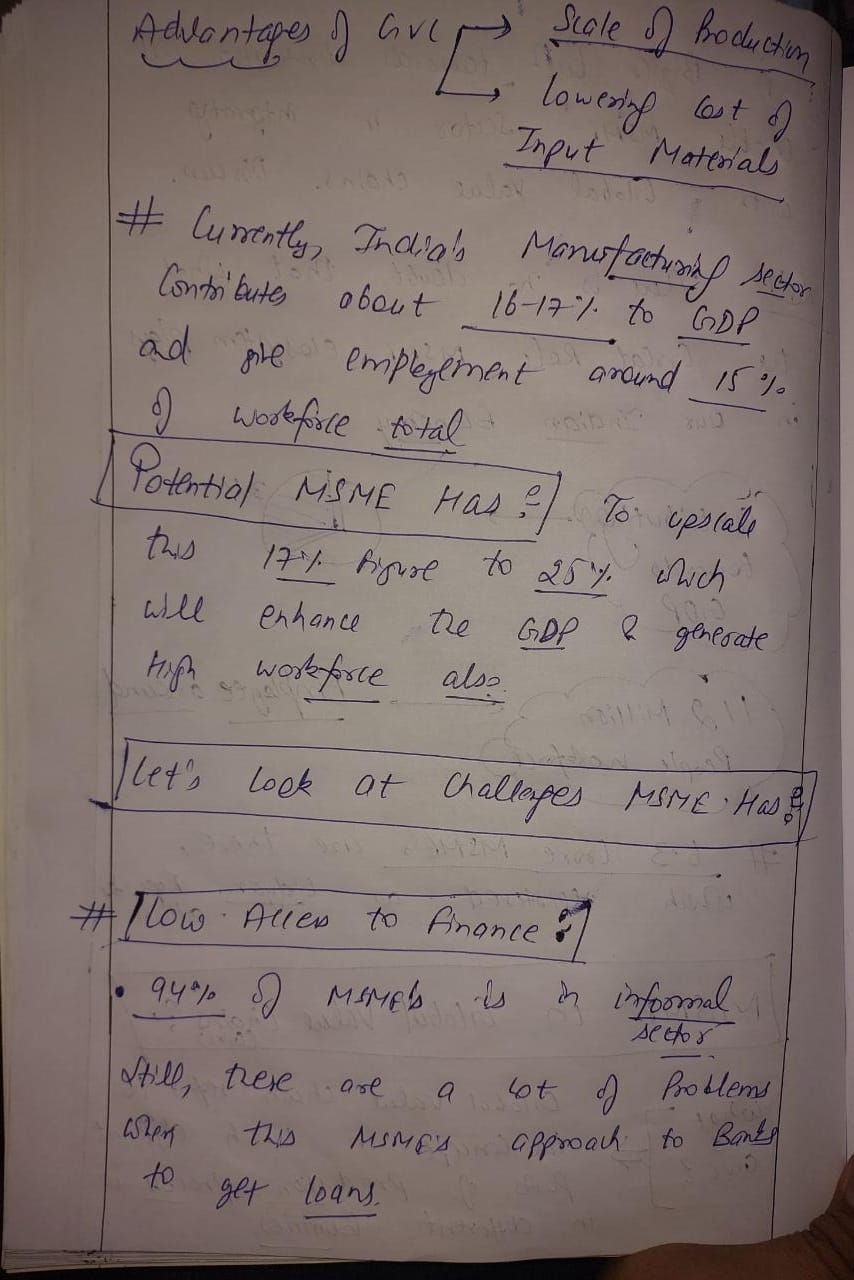 Advantages of GVC → Scale of Production
→ lowering cost of
Input Materials
# Currently, India's Manufacturing sector
Contributes about 16-17% to GDP
and give employement around 15%
of workforce total
Potential MSME Has :- To upscale
this 17% figure to 25% which
will enhance the GDP & generate
High workforce also.
Let's look at Challenges MSME Has :
# low Access to finance :
• 94% of MSME's is in informal
sector
Still, there are a lot of Problems
when this MSME's approach to Banks
to get loans.